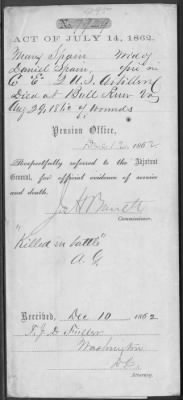 ACT OF JULY 14, 1862.
Mary Spain Wid of
Daniel Spain,
Co E 2 U.S. Artillery
Died at Bull Run Va
Aug 29, 1862 of wounds
Pension Office,
Dec 12, 1862
Respectfully referred to the Adjutant
General, for official evidence of service
and death.
Jos H Barrett
Commissioner.
"Killed in battle"
A. G.
Received, Dec 10 1862
T. J. D. Fuller
Washington
D.C.
Attorney.